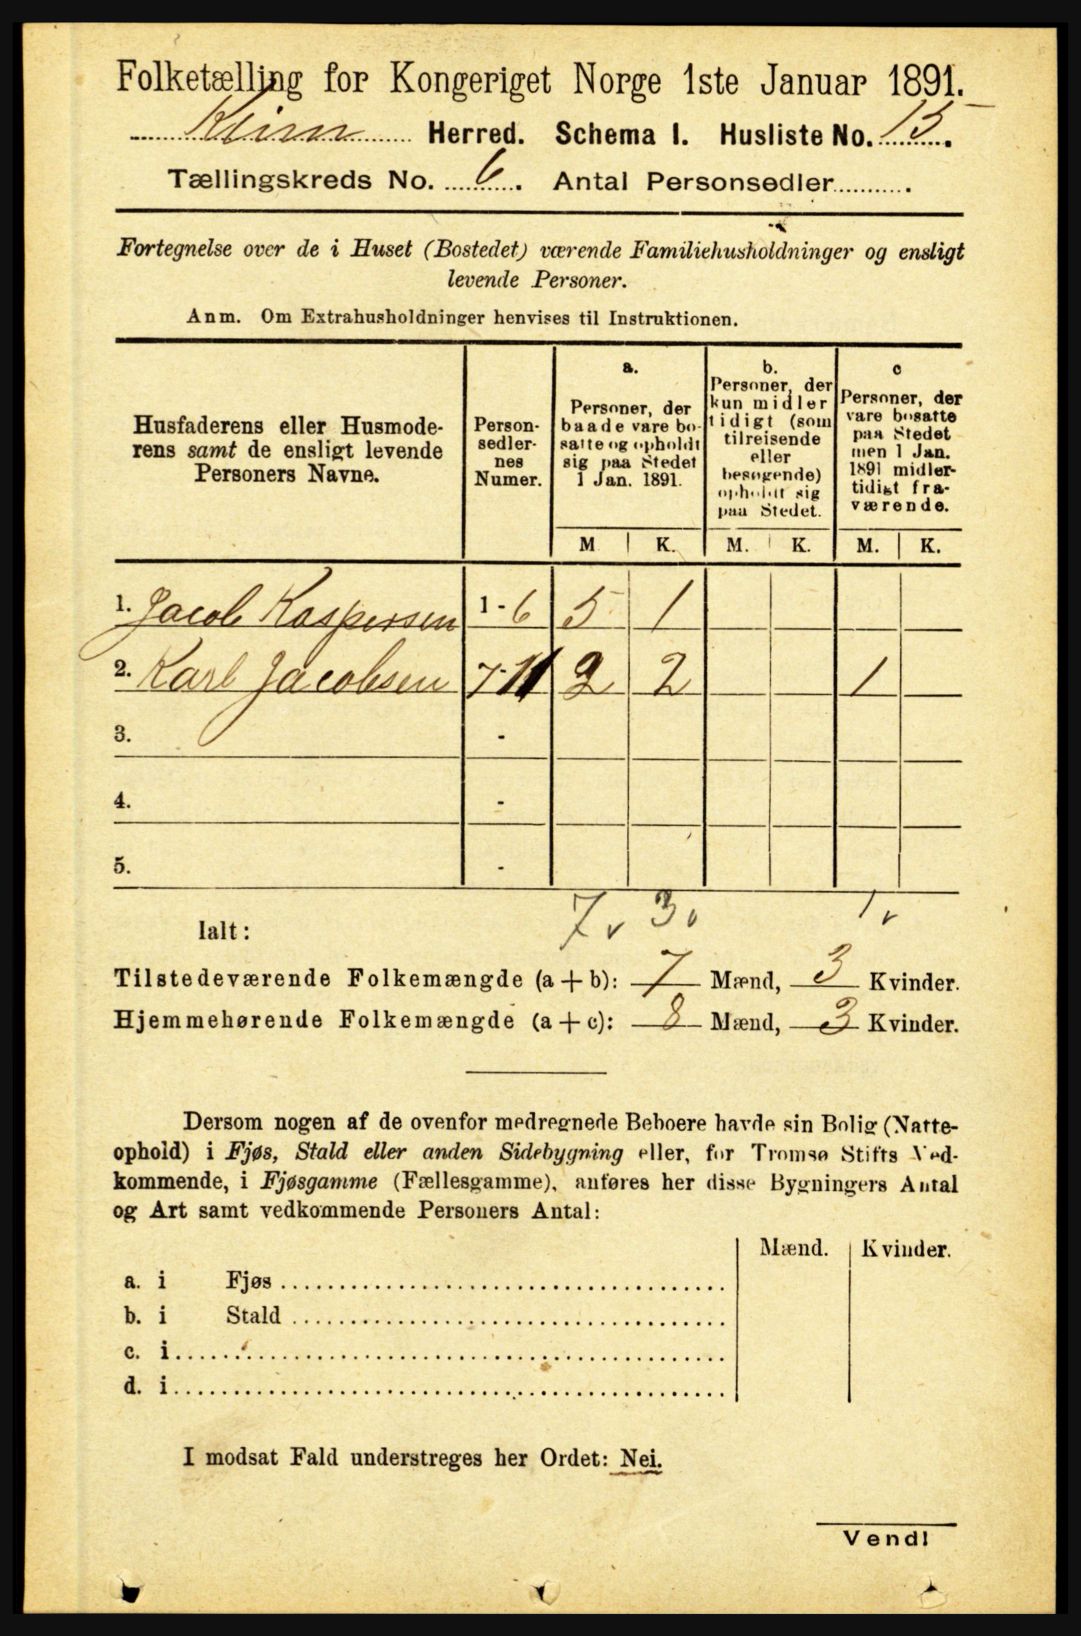 Folketælling for Kongeriget Norge 1ste Januar 1891.
Kinn Herred. Schema I. Husliste No. 15.
Tællingskreds No. 6. Antal Personsedler...........
Fortegnelse over de i Huset (Bostedet) værende Familiehusholdninger og ensligt
levende Personer.
Anm. Om Extrahusholdninger henvises til Instruktionen.
Husfaderens eller Husmode-
rens samt de ensligt levende
Personers Navne.
Person-
sedler-
nes
Numer.
a.
Personer, der
baade vare bo-
satte og opholdt
sig paa Stedet
1 Jan. 1891.
b.
Personer, der
kun midler
tidigt (som
tilreisende
eller
besøgende)
opholdt sig
paa Stedet.
c
Personer, der
vare bosatte
paa Stedet
men 1 Jan.
1891 midler-
tidigt fra-
værende.
M K. M. K. M. K.
1. Jacob Kaspersen 1-6 5 1
2. Karl Jacobsen 7-11 2 2 1
3. -
4. -
5. -
Ialt: 7v 3v 1v
Tilstedeværende Folkemængde (a+b): 7 Mænd, 3 Kvinder.
Hjemmehørende Folkemængde (a+c): 8 Mænd, 3 Kvinder.
Dersom nogen af de ovenfor medregnede Beboere havde sin Bolig (Natte-
ophold) i Fjøs, Stald eller anden Sidebygning eller, for Tromsø Stifts Ved-
kommende, i Fjøsgamme (Fællesgamme), anføres her disse Bygningers Antal
og Art samt vedkommende Personers Antal:
Mænd. Kvinder.
a. i Fjøs
b. i Stald
c. i
d. i
I modsat Fald understreges her Ordet: Nei.
Vend!